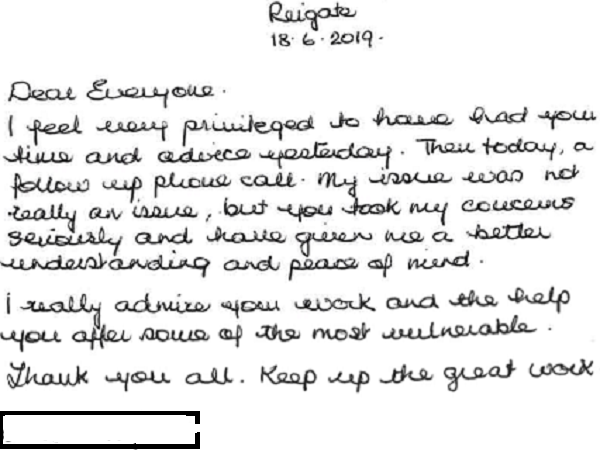 Reigate
18.6.2019.
Dear Everyone.
I feel very privileged to have had your
time and advice yesterday. Then today, a
follow up phone call. My issue was not
really an issue, but you took my concerns
seriously and have given me a better
understanding and peace of mind.
I really admire your work and the help
you offer some of the most vulnerable.
Thank you all. Keep up the great work